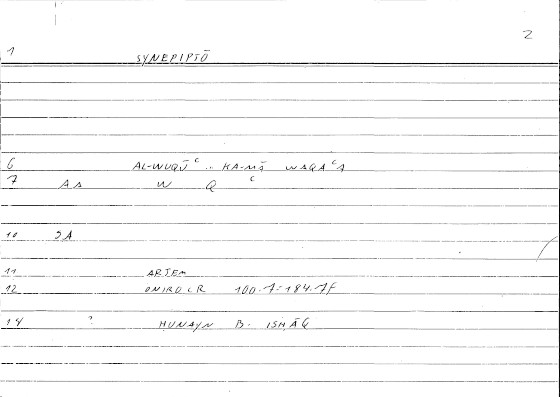 2
1 SYNEPIPTŌ
6 AL-WUQŪʿ .. KA-MĀ WAQAʿA
7 AA W Q ʿ
10 JA
11 ARTEM
12 ONIROCR 100.7 = 184.7f
14 ? HUNAYN B. ISḤĀQ